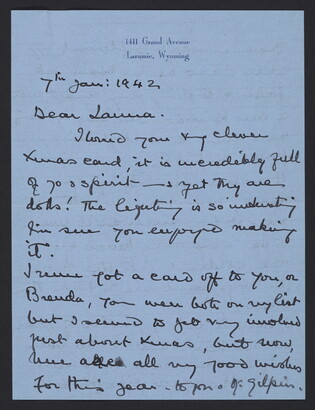 1411 Grand Avenue
Laramie, Wyoming
7th Jan: 1942
Dear Laura.
I loved your Xy clever
Xmas card, it is incredibly full
of spirit — & yet they are
dolls! The lighting is so
I'm sure you enjoyed making
it.
I never got a card off to you, or
Brenda, you were both on my list
but I seemed to get involved
just about Xmas, but now,
here are all my good wishes
for this year – to you & Gilpin.